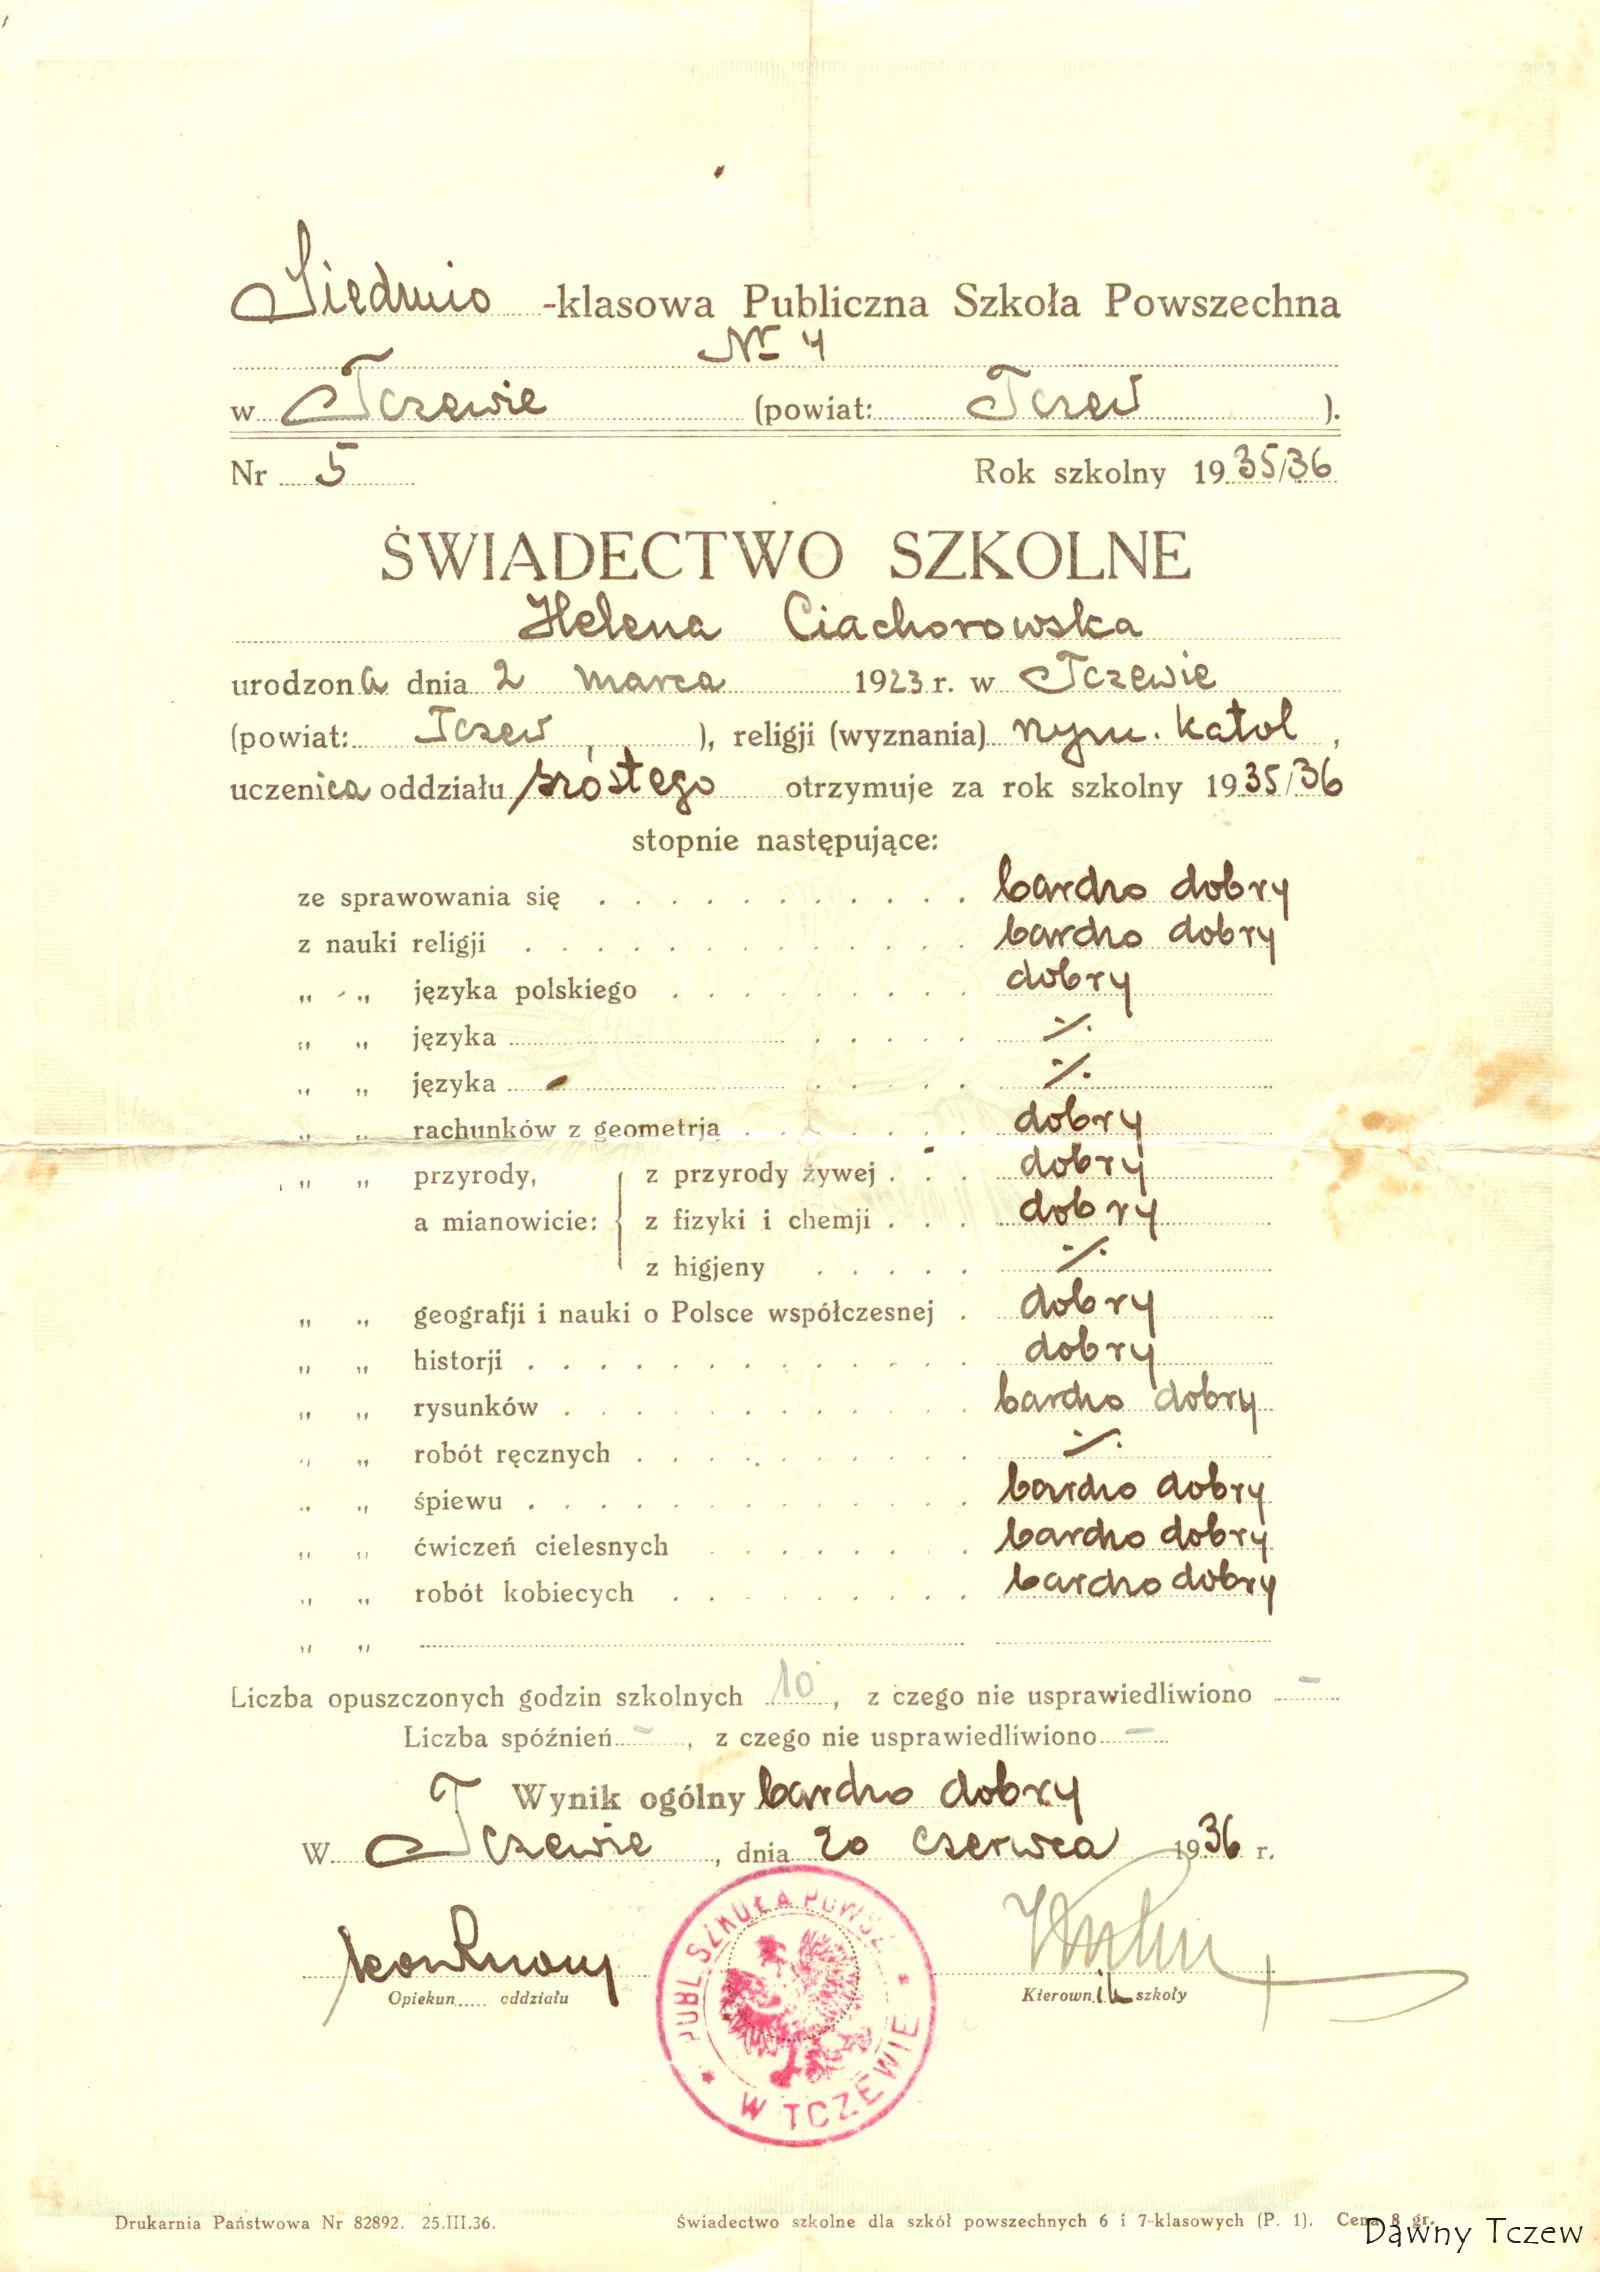 Siedmio -klasowa Publiczna Szkoła Powszechna
Nr 4
w Tczewie (powiat: Tczew ).
Nr 5 Rok szkolny 1935/36
ŚWIADECTWO SZKOLNE
Helena Ciachorowska
urodzona dnia 2 marca 1923 r. w Tczewie
(powiat: Tczew ), religji (wyznania) rzym. katol ,
uczenica oddziału szóstego otrzymuje za rok szkolny 1935/36
stopnie następujące:
ze sprawowania się . . . . . . . . . . . bardzo dobry
z nauki religji . . . . . . . . . . . . . bardzo dobry
„ „ języka polskiego . . . . . . . . . dobry
„ „ języka . . . . . ·/.
„ „ języka . . . . . ·/.
„ „ rachunków z geometrją . . . . . . . dobry
„ „ przyrody, z przyrody żywej . . . dobry
a mianowicie: z fizyki i chemji . . . dobry
z higjeny . . . . . ·/.
„ „ geografji i nauki o Polsce współczesnej . dobry
„ „ historji . . . . . . . . . . . . . dobry
„ „ rysunków . . . . . . . . . . . . bardzo dobry
„ „ robót ręcznych . . . . . . . . . . ·/.
„ „ śpiewu . . . . . . . . . . . . . bardzo dobry
„ „ ćwiczeń cielesnych . . . . . . . . bardzo dobry
„ „ robót kobiecych . . . . . . . . . bardzo dobry
„ „
Liczba opuszczonych godzin szkolnych 10 , z czego nie usprawiedliwiono –
Liczba spóźnień – , z czego nie usprawiedliwiono –
Wynik ogólny bardzo dobry
W Tczewie , dnia 20 czerwca 1936 r.
Opiekun oddziału Kierownik szkoły
PUBL. SZKOŁA POWSZ. * W TCZEWIE *
Drukarnia Państwowa Nr 82892. 25.III.36. Świadectwo szkolne dla szkół powszechnych 6 i 7-klasowych (P. 1). Cena 8 gr.
Dawny Tczew